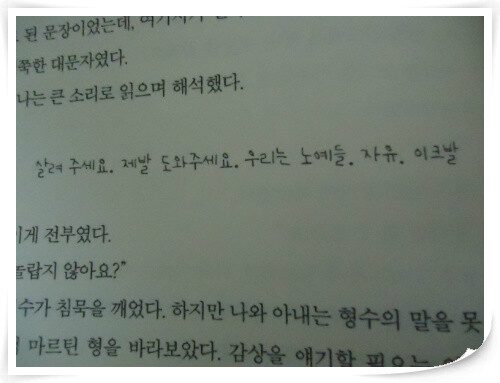 된 문장이었는데, 여기저기
쭉한 대문자였다.
나는 큰 소리로 읽으며 해석했다.
살려 주세요. 제발 도와주세요. 우리는 노예들. 자유. 이크발
이게 전부였다.
놀랍지 않아요?"
수가 침묵을 깨었다. 하지만 나와 아내는 형수의 말을 못
마르틴 형을 바라보았다. 감상을 얘기할 필요는